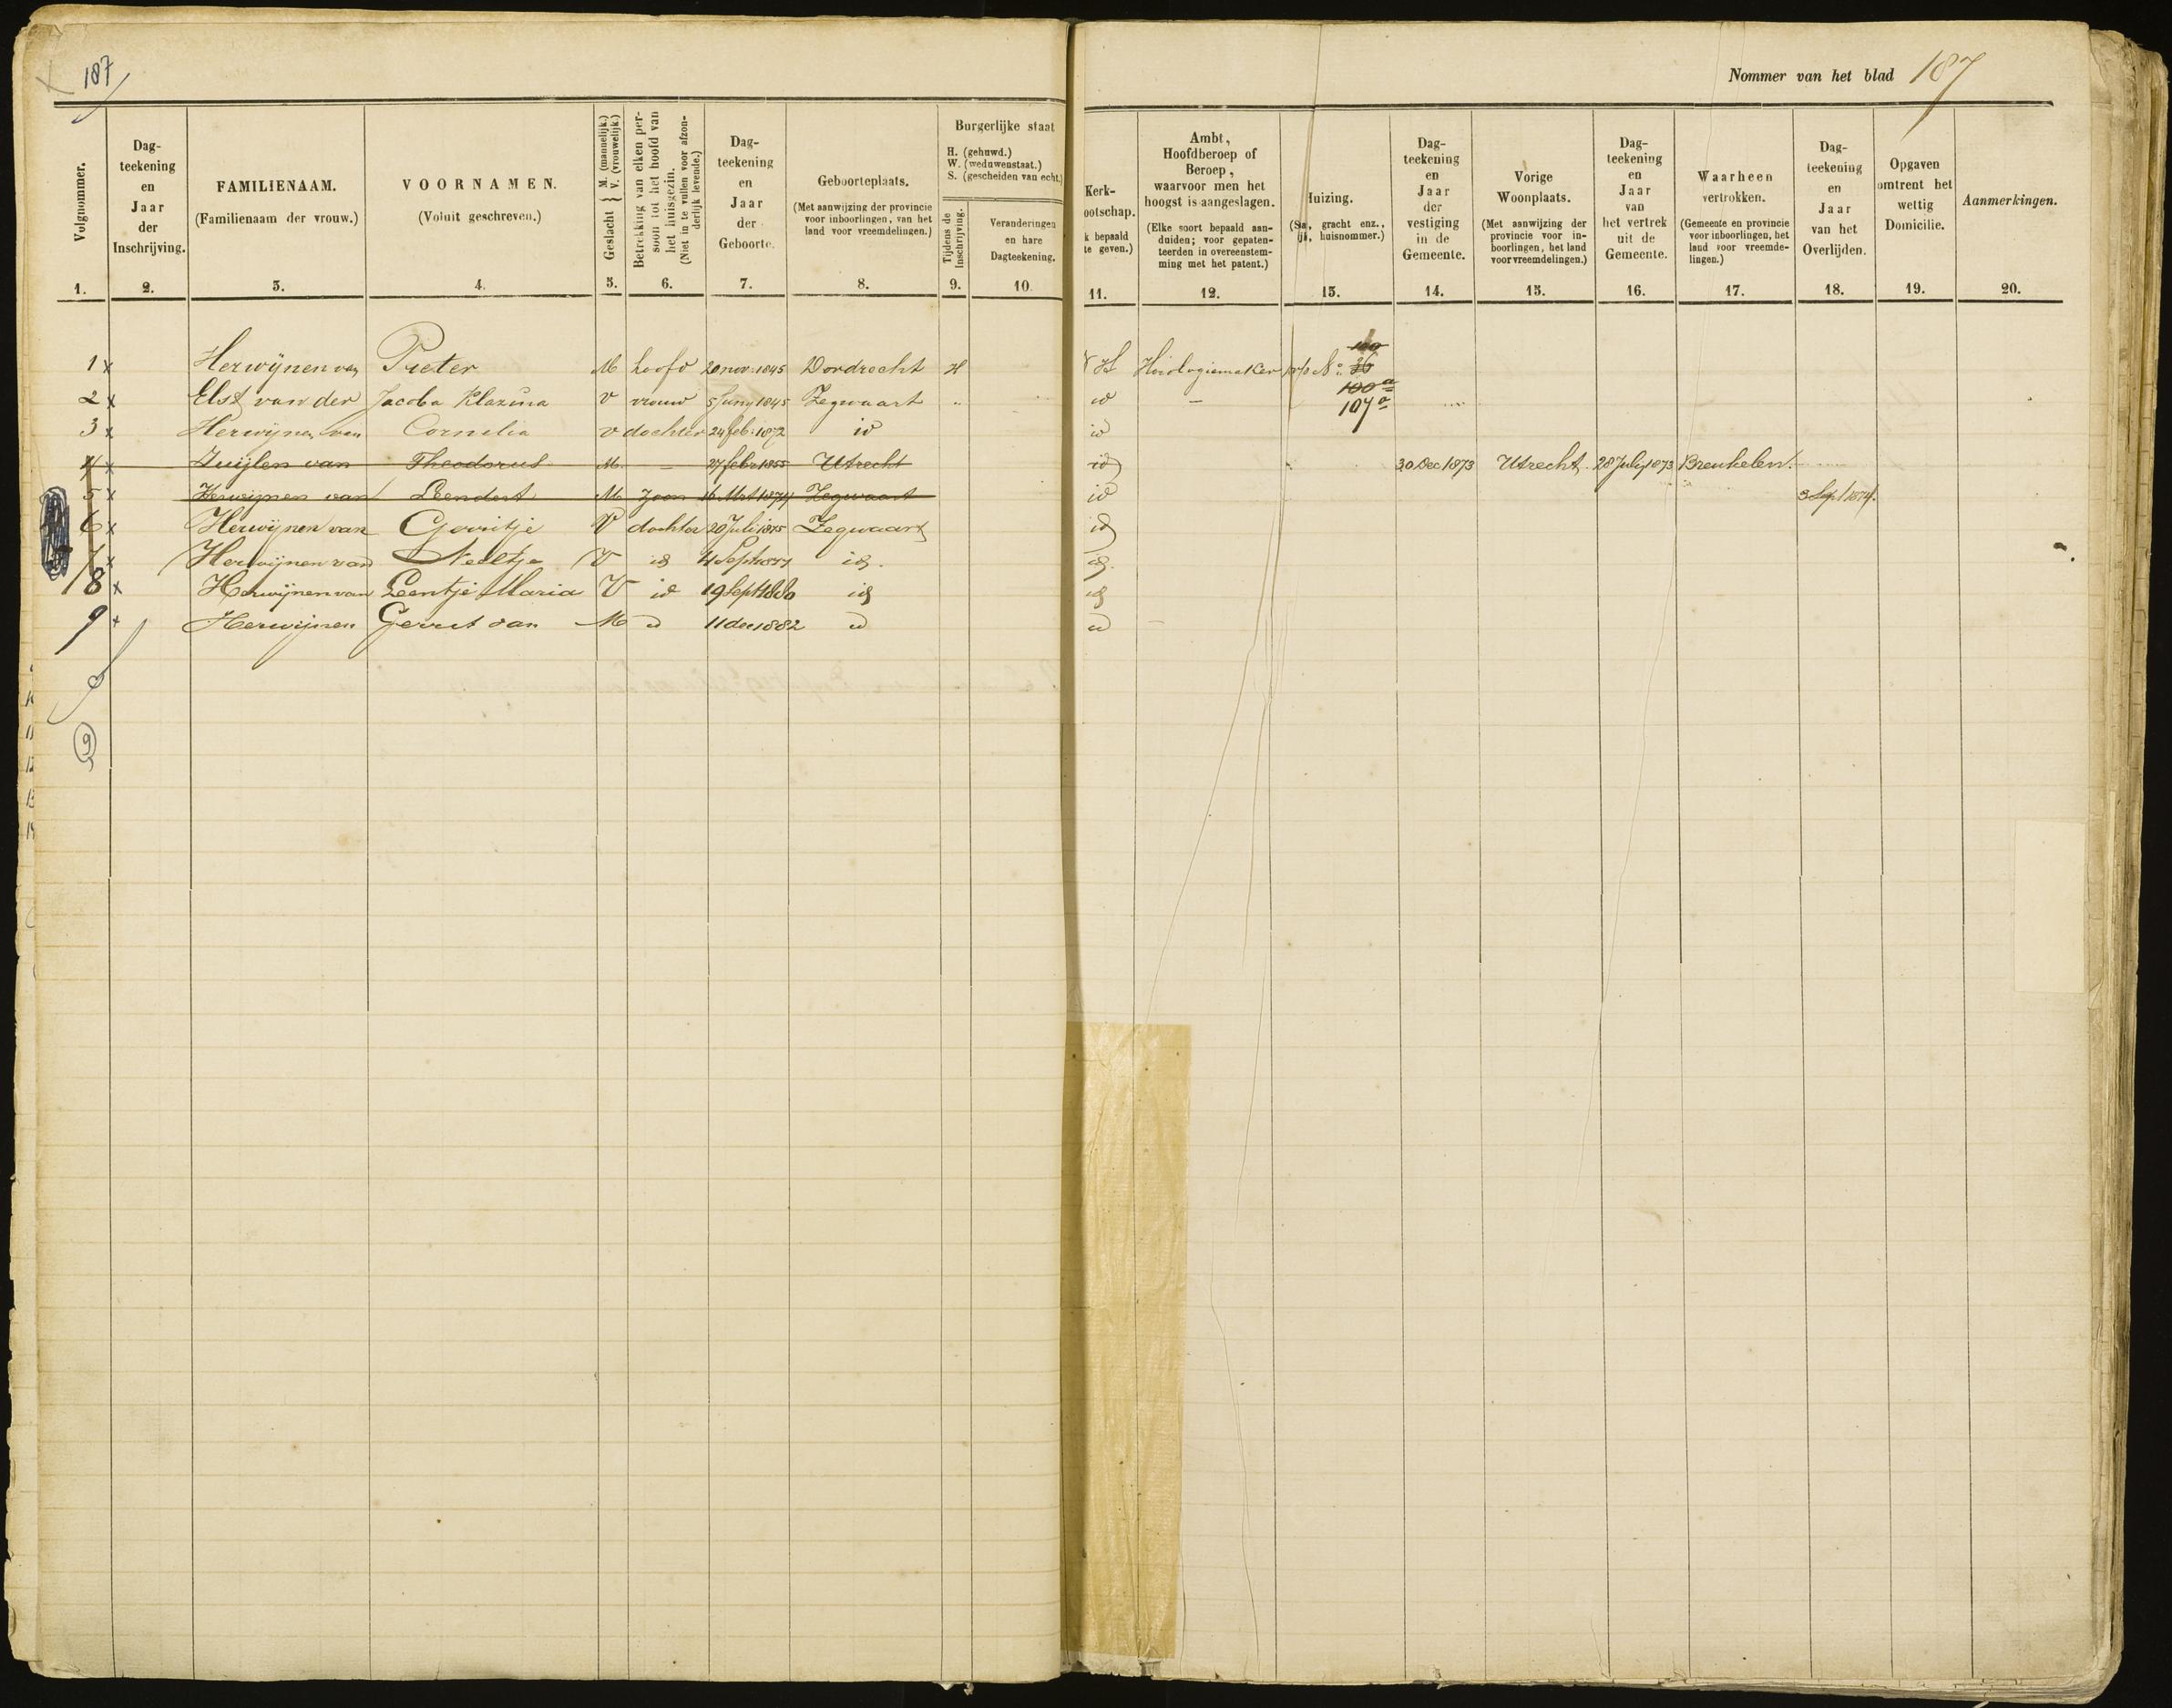 187
Nommer van het blad 187
Volgnommer.
1.
Dag-
teekening
en
Jaar
der
Inschrijving.
2.
FAMILIENAAM.
(Familienaam der vrouw.)
3.
VOORNAMEN.
(Voluit geschreven.)
4.
Geslacht { M. (mannelijk.) V. (vrouwelijk.)
5.
Betrekking van elken per-
soon tot het hoofd van
het huisgezin.
(Niet in te vullen voor afzon-
derlijk levende.)
6.
Dag-
teekening
en
Jaar
der
Geboorte.
7.
Geboorteplaats.
(Met aanwijzing der provincie
voor inboorlingen, van het
land voor vreemdelingen.)
8.
Burgerlijke staat
H. (gehuwd.)
W. (weduwenstaat.)
S. (gescheiden van echt.)
Tijdens de
Inschrijving.
9.
Veranderingen
en hare
Dagteekening.
10.
Kerk-
ootschap.
k bepaald
te geven.)
11.
Ambt,
Hoofdberoep of
Beroep,
waarvoor men het
hoogst is aangeslagen.
(Elke soort bepaald aan-
duiden; voor gepaten-
teerden in overeenstem-
ming met het patent.)
12.
Huizing.
gracht enz.,
huisnommer.)
13.
Dag-
teekening
en
Jaar
der
vestiging
in de
Gemeente.
14.
Vorige
Woonplaats.
(Met aanwijzing der
provincie voor in-
boorlingen, het land
voor vreemdelingen.)
15.
Dag-
teekening
en
Jaar
van
het vertrek
uit de
Gemeente.
16.
Waarheen
vertrokken.
(Gemeente en provincie
voor inboorlingen, het
land voor vreemde-
lingen.)
17.
Dag-
teekening
en
Jaar
van het
Overlijden.
18.
Opgaven
omtrent het
wettig
Domicilie.
19.
Aanmerkingen.
20.
1 x Herwijnen van Pieter M hoofd 20 nov. 1845 Dordrecht H N H Horologiemaker No 36
100
100a
2 x Elst van der Jacoba Klazina V vrouw 5 Juny 1845 Zegwaart " id — 107a
3 x Herwijnen van Cornelia V dochter 24 feb. 1872 id id
4 x Zuijlen van Theodorus M — 27 febr 1855 Utrecht id 30 Dec 1873 Utrecht 28 July 1873 Breukelen
5 x Herwijnen van Leendert M zoon 16 Mrt 1874 Zegwaart id 3 Sept 1874
6 x Herwijnen van Gerritje V dochter 20 Juli 1875 Zegwaart id
7 x Herwijnen van Neeltje V id 4 Sept 1877 id. id.
8 x Herwijnen van Leentje Maria V id 19 Sept 1880 id id
9 x Herwijnen Gerrit van M id 11 dec 1882 id id
9